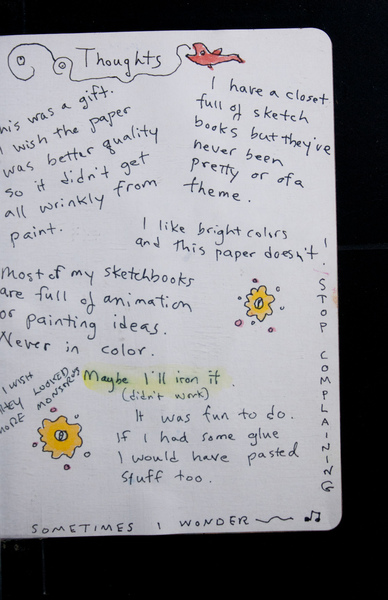 Thoughts
his was a gift.
I wish the paper
was better quality
so it didn't get
all wrinkly from
paint.
I have a closet
full of sketch
books but they've
never been
pretty or of a
theme.
I like bright colors
and this paper doesn't.
Most of my sketchbooks
are full of animation
or painting ideas.
Never in color.
I WISH
THEY LOOKED
MORE MONSTROUS
Maybe I'll iron it.
(didn't work)
It was fun to do.
If I had some glue
I would have pasted
stuff too.
! STOP COMPLAINING
SOMETIMES I WONDER